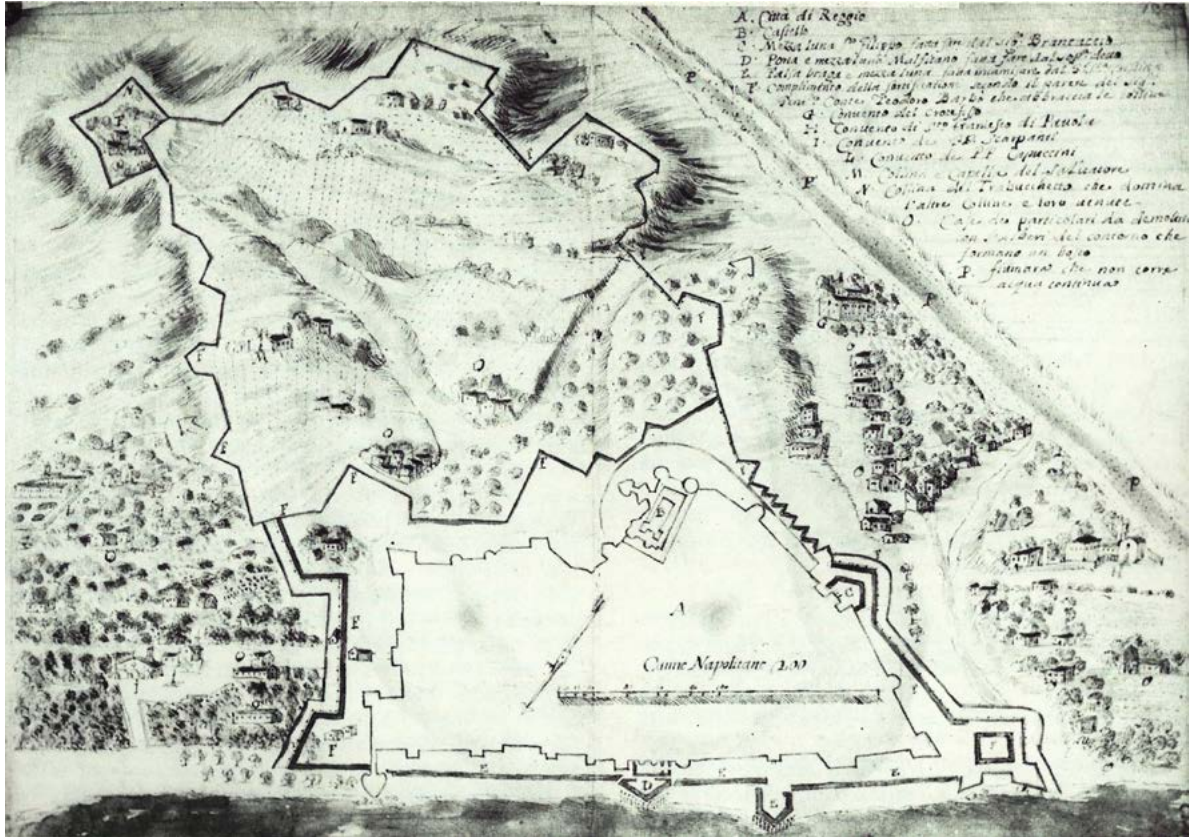 A. Città di Reggio
B. Castello
C. Mezza luna Sto filippo fatta far dal sigr Brancaccio
D. Porta e mezza luna Malfitano fatta fare dal
E. Falsa braga e mezza luna fatta dal
F. Complimento della fortificatione secondo il parere del sig.
Conte Teodoro Barbò che abbraccia le colline
G. Convento del Crocefisso
H. Convento di Sto francesco di Pauola
I. Convento de PP Scarpanti
L. Convento de PP Capuccini
M. Collina e Capella del Saluatore
N. Collina del Trabucchetto che domina
l'altre Coline e loro uenute
O. Case de particolari da demolire
con alberi del contorno che
formano un bosco
P. fiumara che non corre
acqua continua
P
P
P
P
P
N
F
F
F
G
O
F
M
O
O
F
F
F
B
O
F
A
C
F
O
Canne Napolitane 200
F
F
E
D
E
E
E